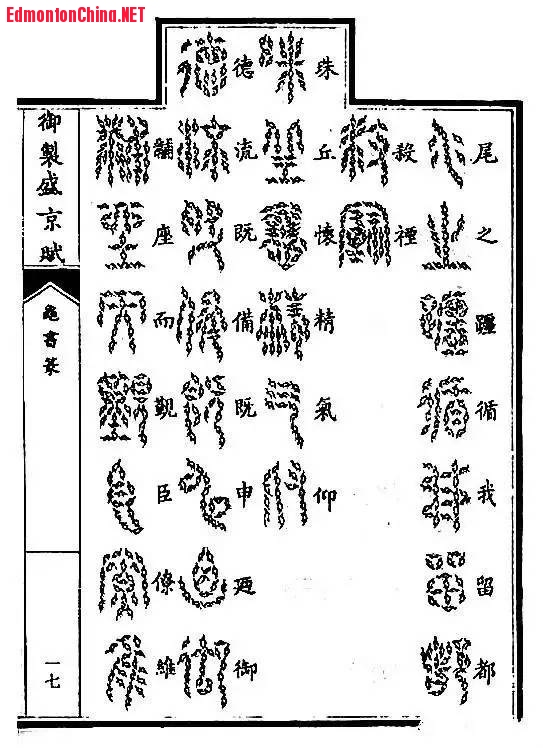 EdmontonChina.NET
尾之躔循我留都
殺禋
珠丘懷精氣仰
德流既備既申迺御
黼座而覲臣僚維
御製盛京賦
龜書篆
一七